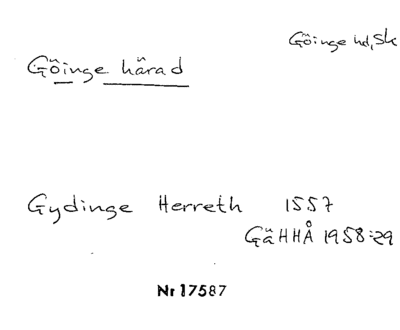 Göinge hd, Sk
Göinge härad
Gydinge Herreth 1557
GäHHÅ 1958:29
Nr 17587